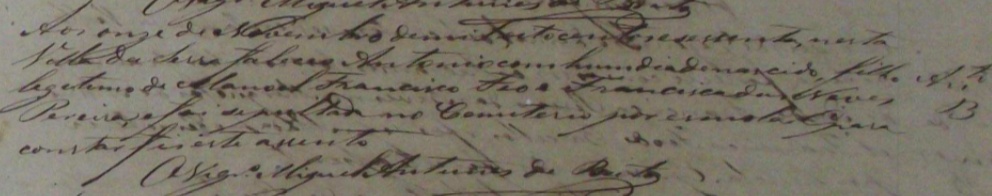 Vig.o Miguel Antunes de
Aos onze de Novembro de mil oito centos e sessenta, nesta
Villa da Serra faleceo Antonio com hum dia de nascido, filho
legitimo de Manoel Francisco Feo e Francisca das Neves
Pereira, e foi sepultado no Cemiterio para
constar fis este assento
O Vig.o Miguel Antunes de